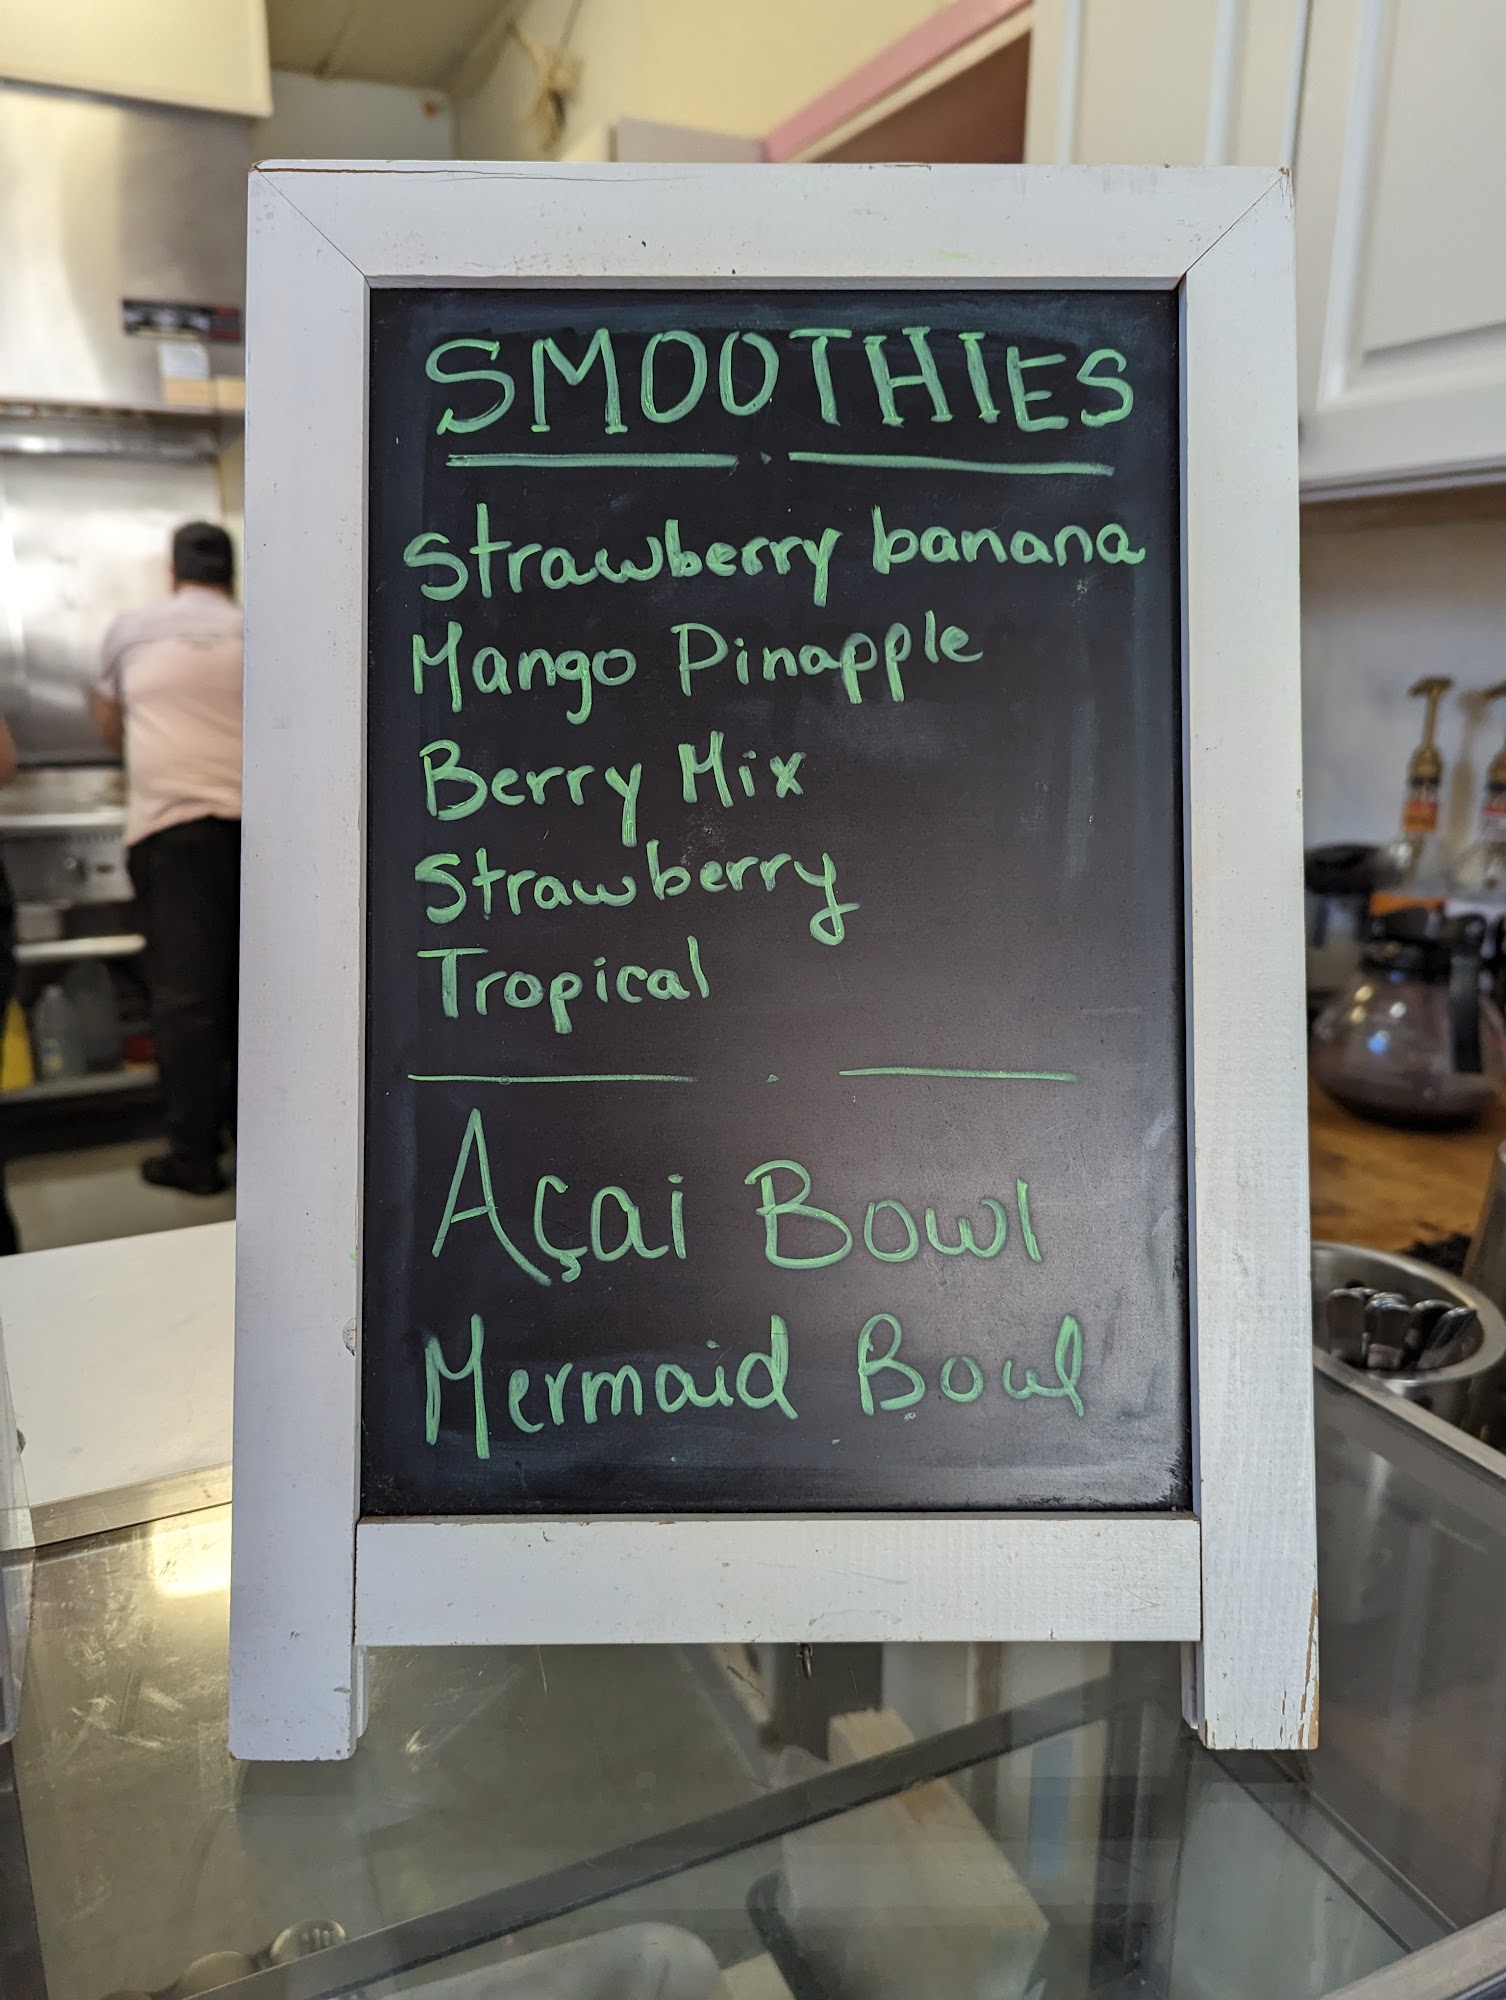 SMOOTHIES
Strawberry banana
Mango Pinapple
Berry Mix
Strawberry
Tropical
Açai Bowl
Mermaid Bowl